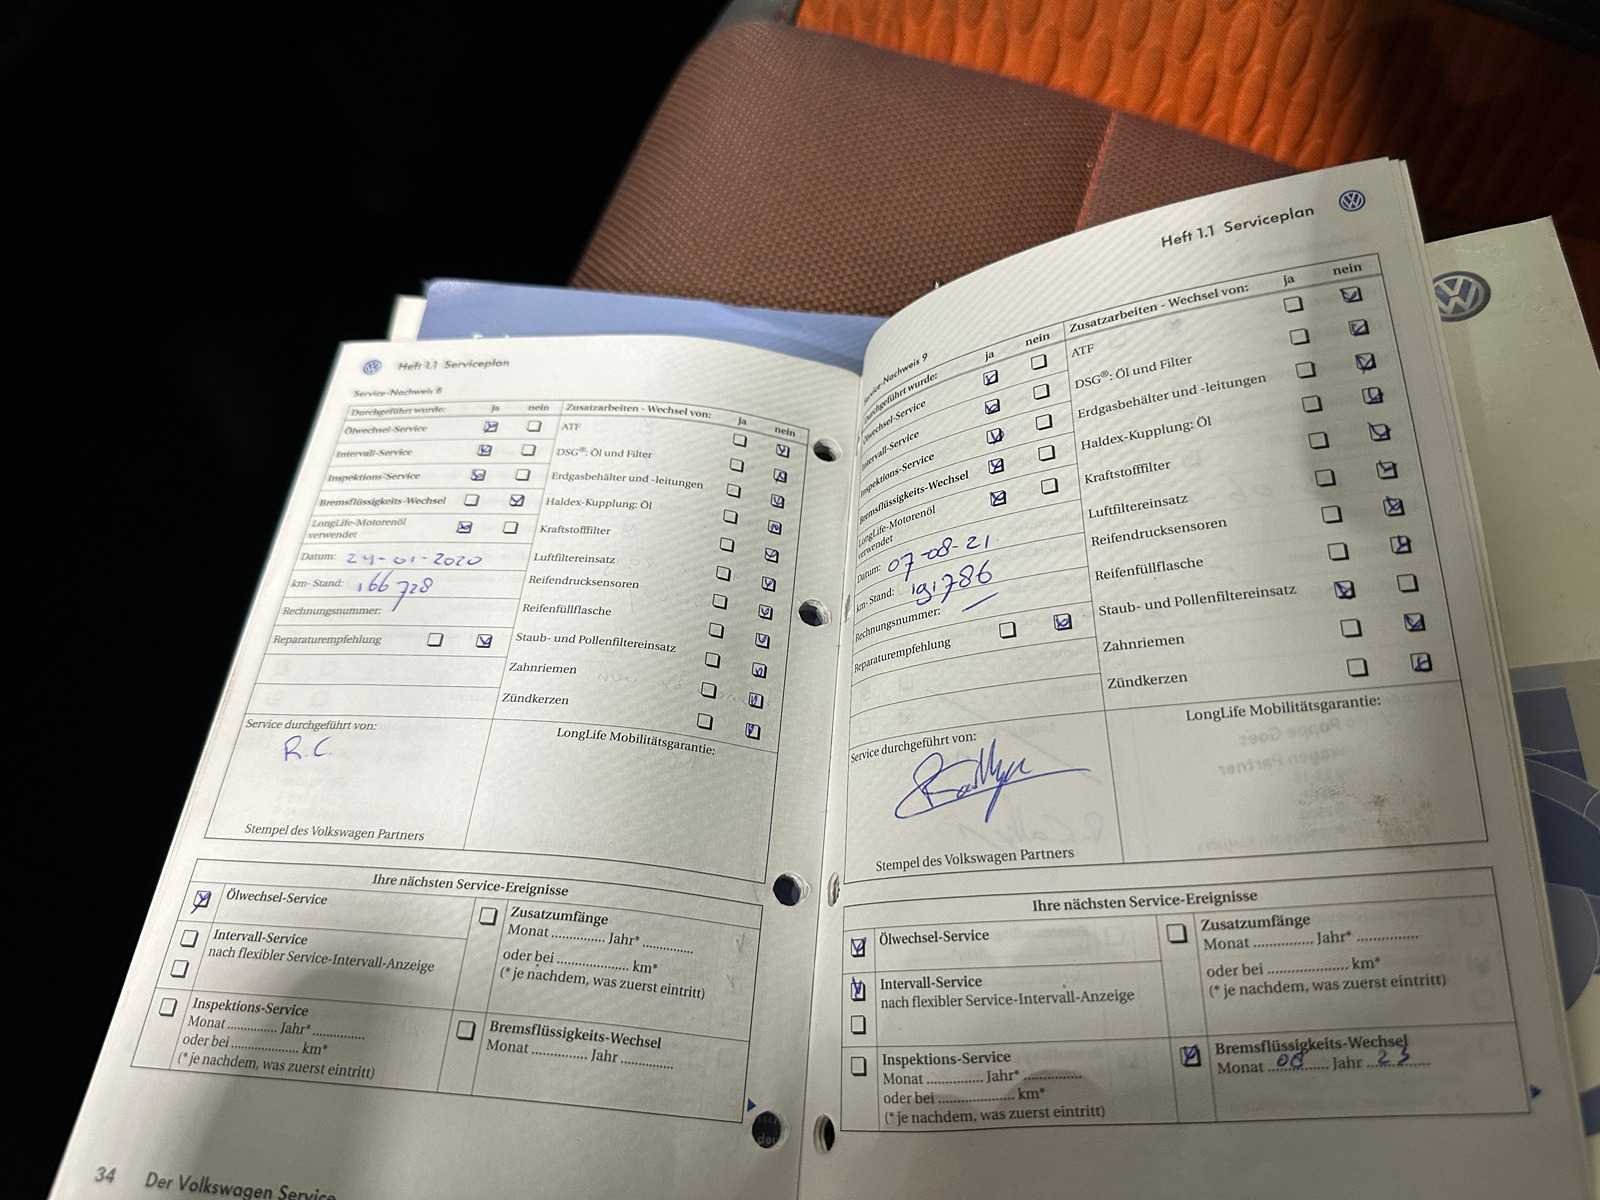 Heft 1.1 Serviceplan
Service-Nachweis 8
Durchgeführt wurde: ja nein
Ölwechsel-Service
Intervall-Service
Inspektions-Service
Bremsflüssigkeits-Wechsel
LongLife-Motorenöl
verwendet
Datum: 24-01-2020
km- Stand: 166728
Rechnungsnummer:
Reparaturempfehlung
Zusatzarbeiten - Wechsel von: ja nein
ATF
DSG®: Öl und Filter
Erdgasbehälter und -leitungen
Haldex-Kupplung: Öl
Kraftstofffilter
Luftfiltereinsatz
Reifendrucksensoren
Reifenfüllflasche
Staub- und Pollenfiltereinsatz
Zahnriemen
Zündkerzen
Service durchgeführt von:
R.C.
Stempel des Volkswagen Partners
LongLife Mobilitätsgarantie:
Ihre nächsten Service-Ereignisse
Ölwechsel-Service
Intervall-Service
nach flexibler Service-Intervall-Anzeige
Inspektions-Service
Monat .............. Jahr* ..............
oder bei .................... km*
(* je nachdem, was zuerst eintritt)
Zusatzumfänge
Monat .............. Jahr* ..............
oder bei .................... km*
(* je nachdem, was zuerst eintritt)
Bremsflüssigkeits-Wechsel
Monat .............. Jahr ..............
34 Der Volkswagen Service
Heft 1.1 Serviceplan
Service-Nachweis 9
Durchgeführt wurde: ja nein
Ölwechsel-Service
Intervall-Service
Inspektions-Service
Bremsflüssigkeits-Wechsel
LongLife-Motorenöl
verwendet
Datum: 07-08-21
km- Stand: 191786
Rechnungsnummer:
Reparaturempfehlung
Zusatzarbeiten - Wechsel von: ja nein
ATF
DSG®: Öl und Filter
Erdgasbehälter und -leitungen
Haldex-Kupplung: Öl
Kraftstofffilter
Luftfiltereinsatz
Reifendrucksensoren
Reifenfüllflasche
Staub- und Pollenfiltereinsatz
Zahnriemen
Zündkerzen
Service durchgeführt von:
Stempel des Volkswagen Partners
LongLife Mobilitätsgarantie:
Ihre nächsten Service-Ereignisse
Ölwechsel-Service
Intervall-Service
nach flexibler Service-Intervall-Anzeige
Inspektions-Service
Monat .............. Jahr* ..............
oder bei .................... km*
(* je nachdem, was zuerst eintritt)
Zusatzumfänge
Monat .............. Jahr* ..............
oder bei .................... km*
(* je nachdem, was zuerst eintritt)
Bremsflüssigkeits-Wechsel
Monat 08 Jahr 23